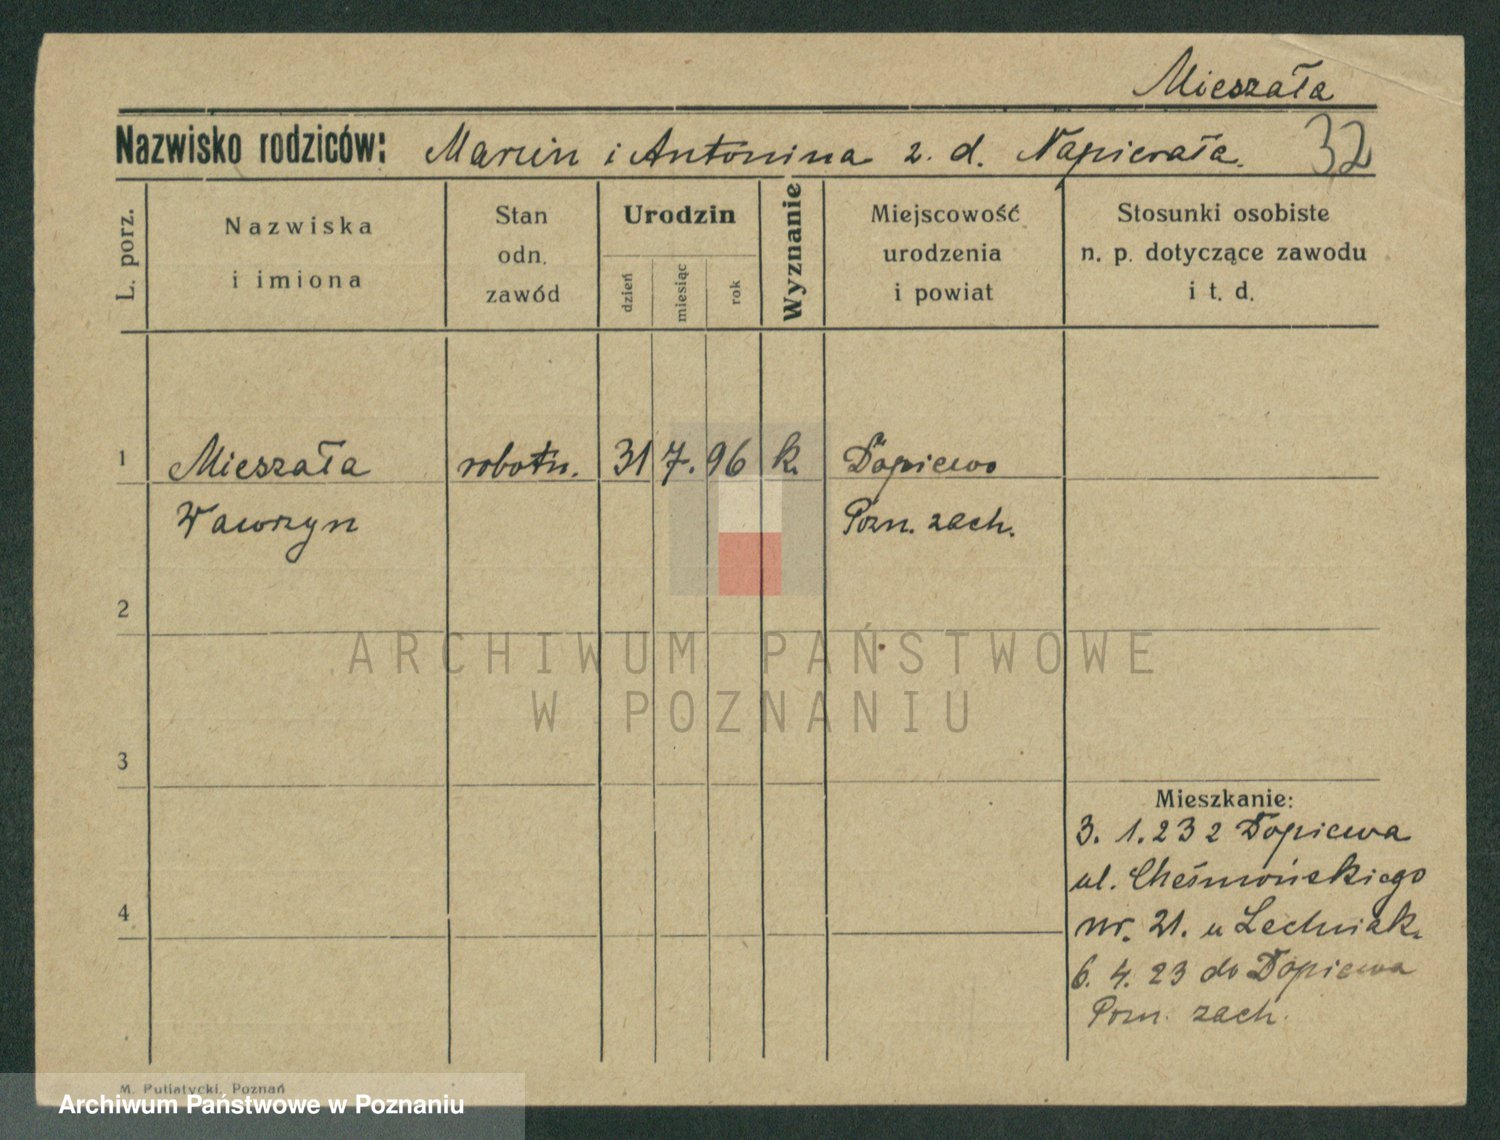 Mieszała
Nazwisko rodziców: Marcin i Antonina z. d. Napierała.
32
L. porz.
Nazwiska
i imiona
Stan
odn.
zawód
Urodzin
dzień
miesiąc
rok
Wyznanie
Miejscowość
urodzenia
i powiat
Stosunki osobiste
n. p. dotyczące zawodu
i t. d.
1 Mieszała robotn. 31 7. 96 k. Dopiewo
Wawrzyn Pozn. zach.
2
ARCHIWUM PAŃSTWOWE
W POZNANIU
3
Mieszkanie:
3. 1. 23 z Dopiewa
ul. Chełmońskiego
4
nr. 21. u Lechniak.
6. 4. 23 do Dopiewa
Pozn. zach.
M. Putiatycki, Poznań
Archiwum Państwowe w Poznaniu